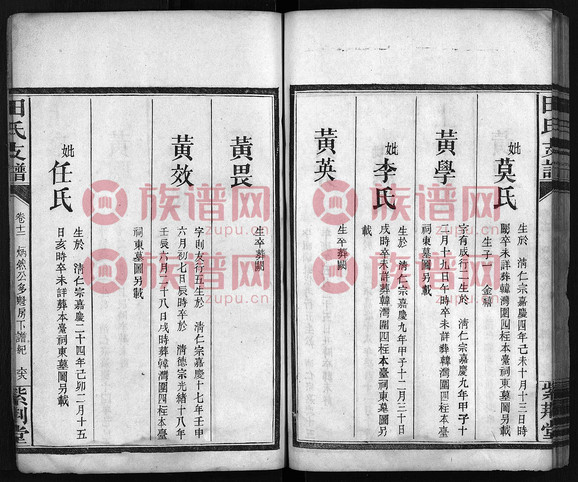 田氏支譜
紫荊堂
妣莫氏
生於 清仁宗嘉慶四年己未十月十三日時
卒未詳葬韓灣圍四桱本臺祠東墓圖另載
生子一金禧
黃學
字有成行二生於 清仁宗嘉慶九年甲子十
二月十九日午時卒未詳葬韓灣圍四桱本臺
祠東墓圖另載
妣李氏
生於 清仁宗嘉慶九年甲子十二月三十日
戌時卒未詳葬韓灣圍四桱本臺祠東墓圖另
載
黃英
生卒葬闕
黃畏
生卒葬闕
黃效
字則友行五生於 清仁宗嘉慶十七年壬申
六月初七日辰時卒於 清德宗光緒十八年
壬辰六月二十八日戌時葬韓灣圍四桱本臺
祠東墓圖另載
妣任氏
生於 清仁宗嘉慶二十四年己卯二月十五
日亥時卒未詳葬本臺祠東墓圖另載
田氏支譜
卷十二
紫荊堂
族谱网
www.zupu.cn
族谱网
www.zupu.cn
族谱网
www.zupu.cn
族谱网
www.zupu.cn